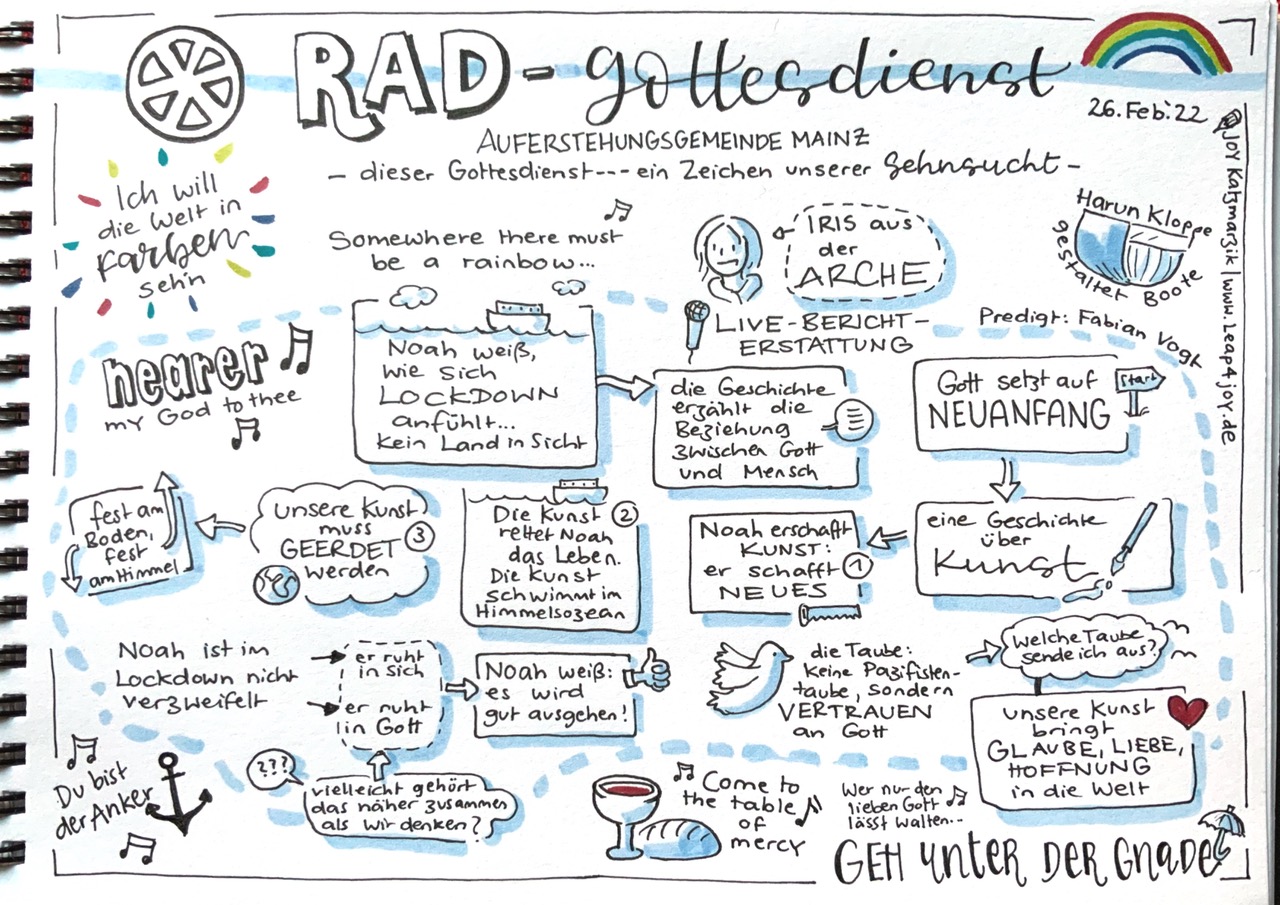 RAD-gottesdienst
26. Feb. 22
AUFERSTEHUNGSGEMEINDE MAINZ
- dieser Gottesdienst --- ein Zeichen unserer Sehnsucht -
JOY Katzmarzik | www.Leap4joy.de
Ich will
die Welt in
Farben
seh'n
Somewhere there must
be a rainbow...
IRIS aus
der
ARCHE
LIVE-BERICHT-
ERSTATTUNG
Harun Kloppe
gestaltet Boote
Predigt: Fabian Vogt
nearer
my God to thee
Noah weiß,
wie sich
LOCKDOWN
anfühlt...
kein Land in Sicht
die Geschichte
erzählt die
Beziehung
zwischen Gott
und Mensch
Gott setzt auf
NEUANFANG
Start
eine Geschichte
über
Kunst
Noah erschafft
KUNST:
er schafft 1
NEUES
Die Kunst 2
rettet Noah
das Leben.
Die Kunst
schwimmt im
Himmelsozean
unsere Kunst
muss
GEERDET 3
werden
fest am
Boden,
fest
am Himmel
Noah ist im
Lockdown nicht
verzweifelt
er ruht
in sich
er ruht
in Gott
Noah weiß:
es wird
gut ausgehen!
die Taube:
keine Pazifisten-
taube, sondern
VERTRAUEN
an Gott
welche Taube
sende ich aus?
unsere Kunst
bringt
GLAUBE, LIEBE,
HOFFNUNG
in die Welt
Du bist
der Anker
???
vielleicht gehört
das näher zusammen
als wir denken?
Come to
the table
of
mercy
Wer nur den
lieben Gott
lässt walten...
GEH unter DER GnaDe